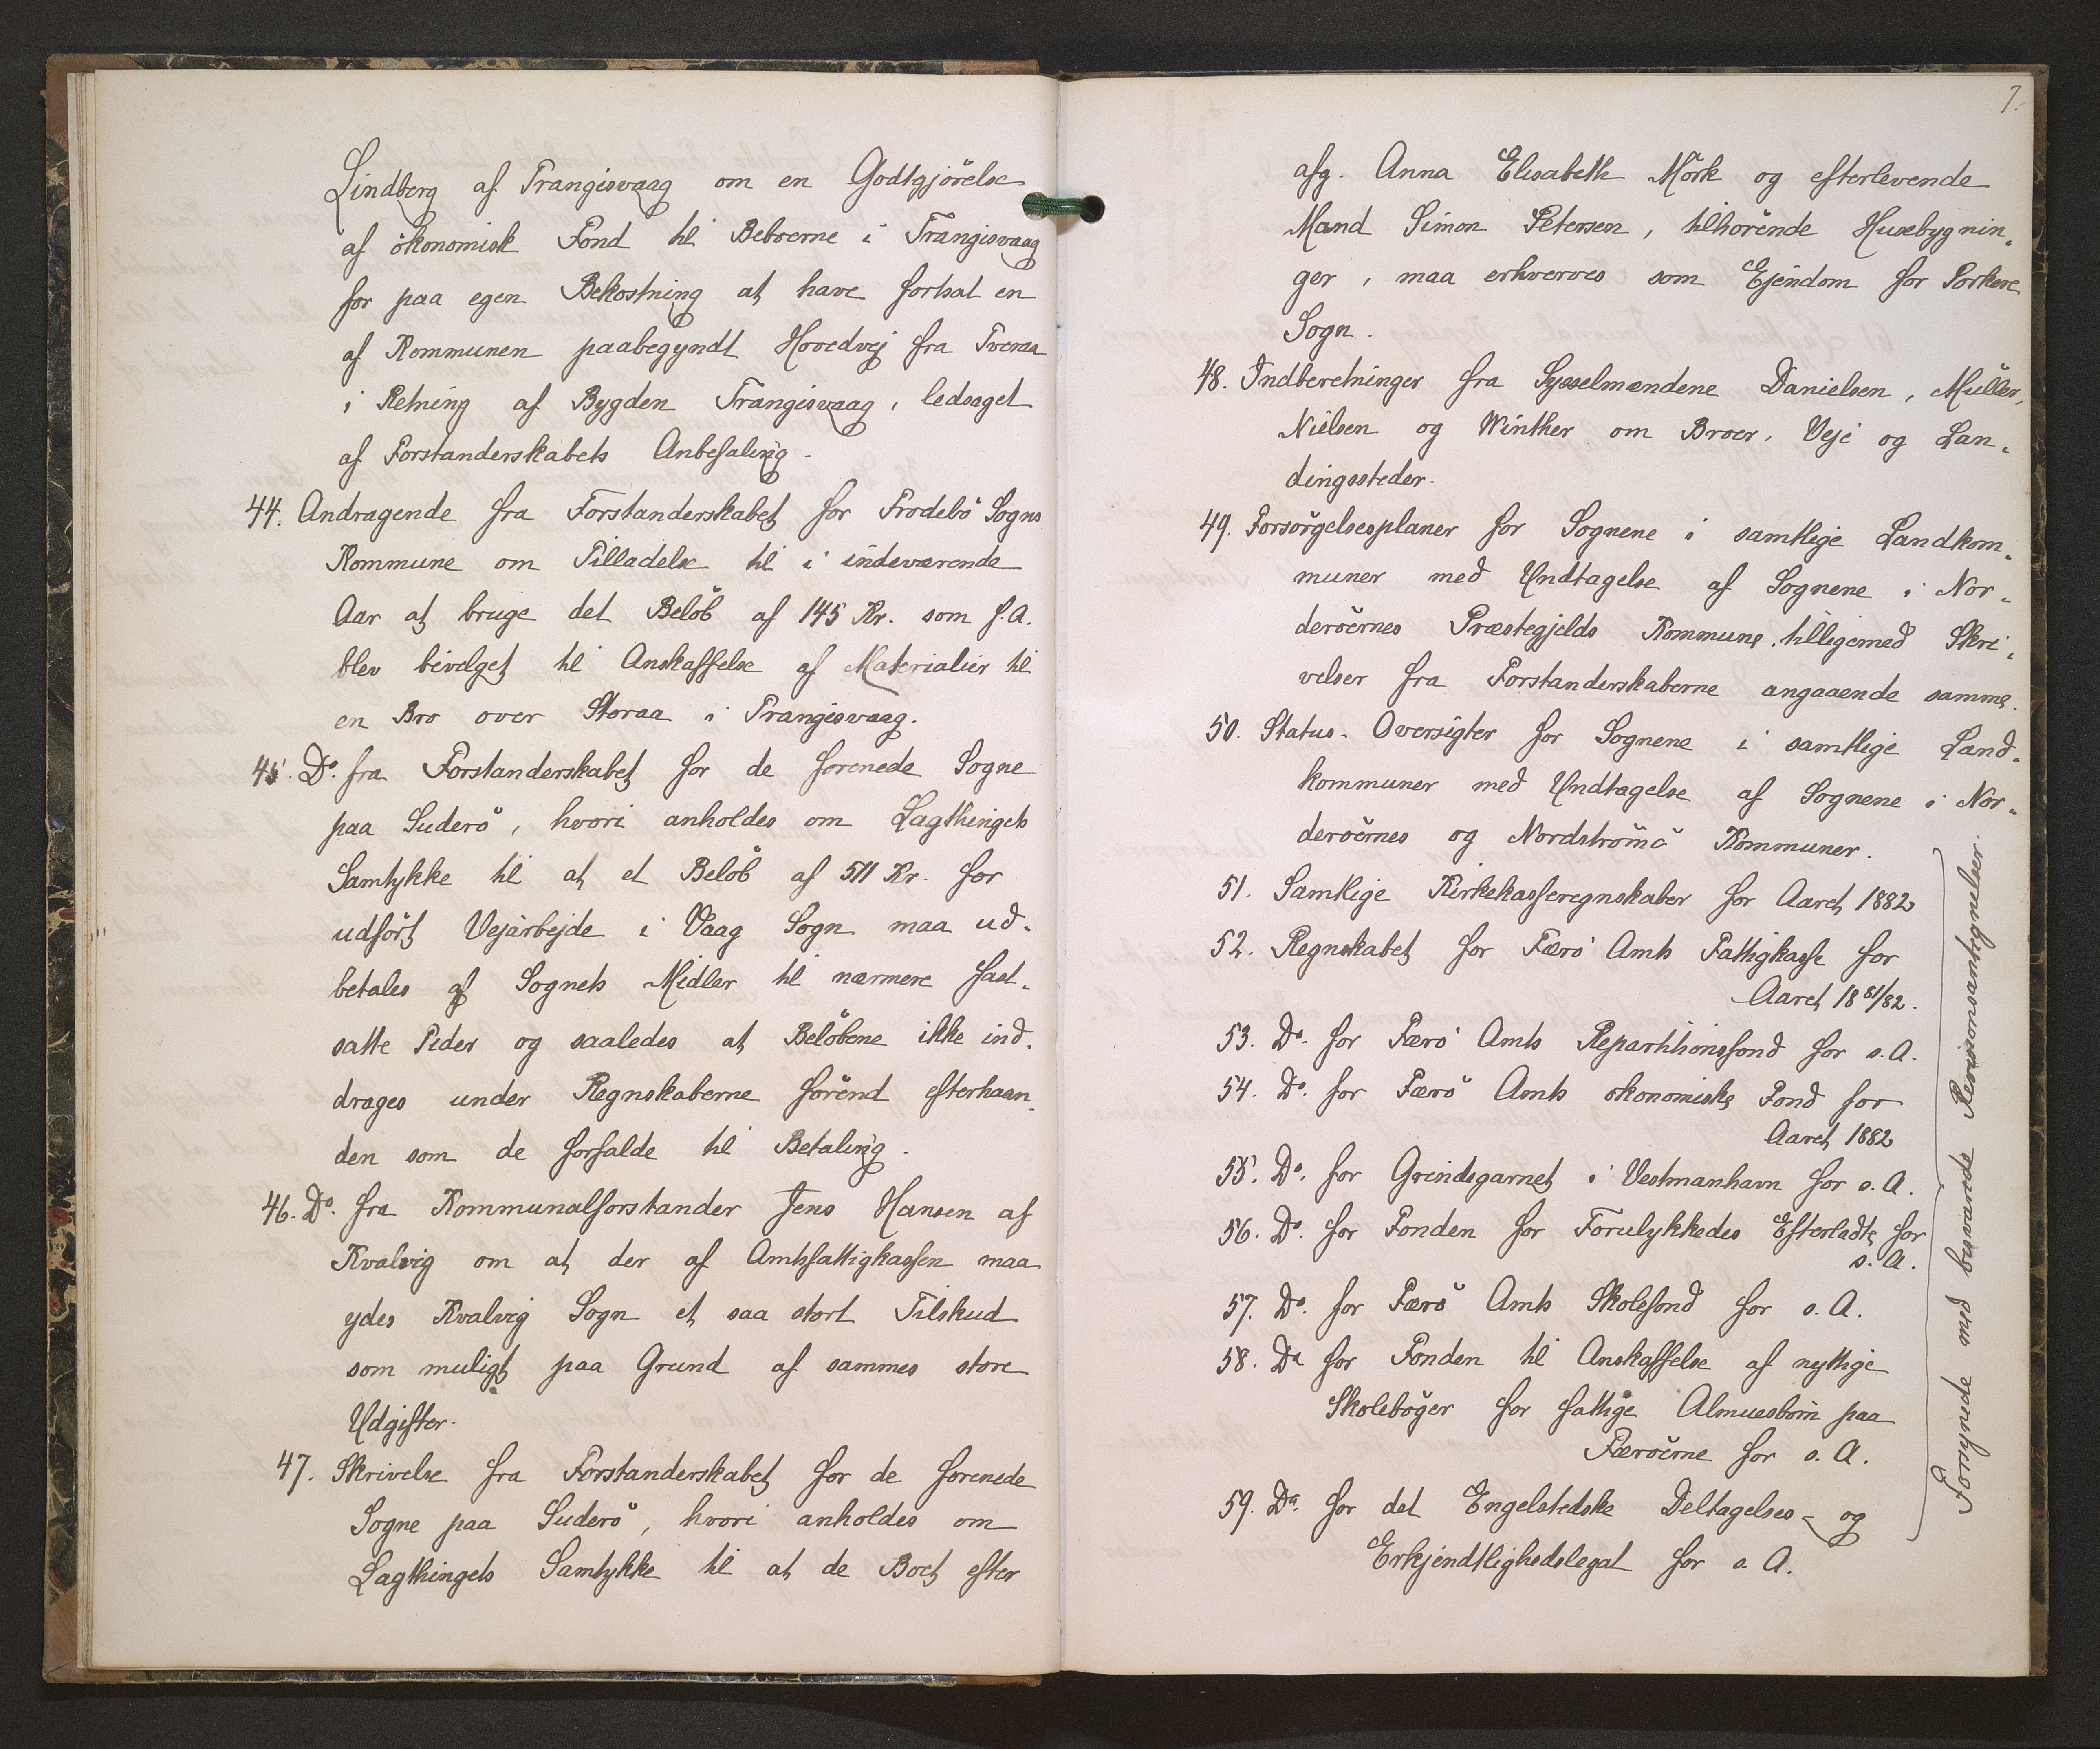 Lindberg af Trangisvaag om en Godtgjörelse
af ökonomisk Fond til Beboerne i Trangisvaag
for paa egen Bekostning at have fortsat en
af Kommunen paabegyndt Hovedvej fra Tveraa
i Retning af Bygden Trangisvaag, ledsaget
af Forstanderskabets Anbefaling.
44. Andragende fra Forstanderskabet for Frodebö Sogns
Kommune om Tilladelse til i indeværende
Aar at bruge det Belöb af 145 Kr. som f.A.
blev bevilget til Anskaffelse af Materialier til
en Bro over Storaa i Trangisvaag.
45. Do. fra Forstanderskabet for de forenede Sogne
paa Suderö, hvori anholdes om Lagthingets
Samtykke til at et Belöb af 511 Kr. for
udfört Vejarbejde i Vaag Sogn maa ud-
betales af Sognets Midler til nærmere fast-
satte Tider og saaledes at Belöbene ikke ind-
drages under Regnskaberne förend efterhaan-
den som de forfalde til Betaling.
46. Do. fra Kommunalforstander Jens Hansen af
Kvalvig om at der af Amtsfattigkassen maa
ydes Kvalvig Sogn et saa stort Tilskud
som muligt paa Grund af sammes store
Udgifter.
47. Skrivelse fra Forstanderskabet for de forenede
Sogne paa Suderö, hvori anholdes om
Lagthingets Samtykke til at de Boet efter
7.
afg. Anna Elisabeth Mörk og efterlevende
Mand Simon Petersen, tilhörende Husebygnin-
ger, maa erhverves som Ejendom for Porkere
Sogn.
48. Indberetninger fra Sysselmændene Danielsen, Müller,
Nielsen og Winther om Broer, Veje og Lan-
dingssteder.
49. Forsörgelsesplaner for Sognene i samtlige Landkom-
muner med Undtagelse af Sognene i Nor-
deröernes Præstegjelds Kommune, tilligemed Skri-
velser fra Forstanderskaberne angaaende samme.
50. Status-Oversigter for Sognene i samtlige Land-
kommuner med Undtagelse af Sognene i Nor-
deröernes og Nordströmö Kommuner.
51. Samtlige Kirkekasseregnskaber for Aaret 1882
52. Regnskabet for Færö Amts Fattigkasse for
Aaret 1881/82.
53. Do. for Færö Amts Repartitionsfond for s.A.
54. Do. for Færö Amts ökonomiske Fond for
Aaret 1882
55. Do. for Grindegarnet i Vestmanhavn for s.A.
56. Do. for Fonden for Forulykkedes Efterladte for
s.A.
57. Do. for Færö Amts Skolefond for s.A.
58. Do for Fonden til Anskaffelse af nyttige
Skoleböger for fattige Almuesbörn paa
Færöerne for s.A.
59. Do. for det Engelstedske Deltagelses- og
Erkjendtlighedslegat for s.A.
Forsynede med besvarede Revisionsantegnelser.